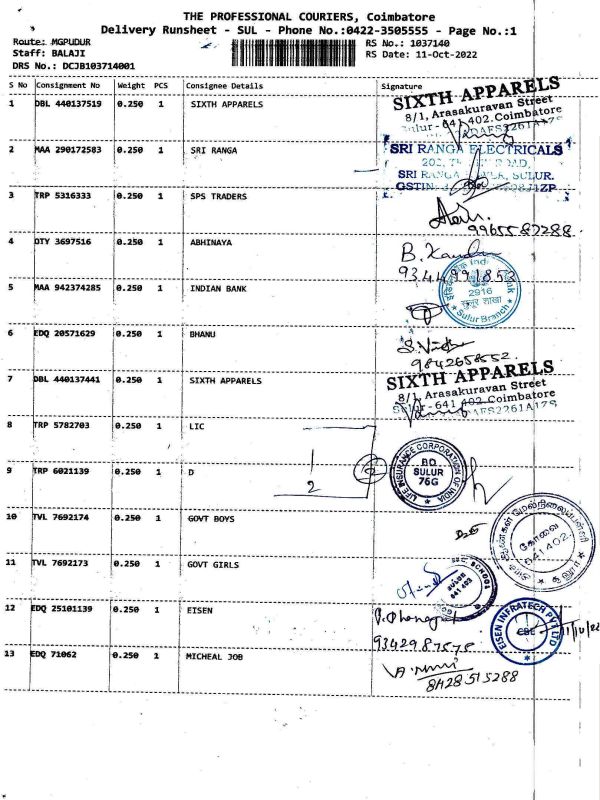 THE PROFESSIONAL COURIERS, Coimbatore
Delivery Runsheet - SUL - Phone No.:0422-3505555 - Page No.:1
Route: MGPUDUR
Staff: BALAJI
DRS No.: DCJB103714001
RS No.: 1037140
RS Date: 11-Oct-2022
S No Consignment No Weight PCS Consignee Details Signature
1 DBL 440137519 0.250 1 SIXTH APPARELS
SIXTH APPARELS
8/1, Arasakuravan Street
Sulur - 641 402. Coimbatore
2 MAA 290172583 0.250 1 SRI RANGA
SRI RANGA ELECTRICALS
SULUR.
GSTIN:
3 TRP 5316333 0.250 1 SPS TRADERS
9965587288
4 DTY 3697516 0.250 1 ABHINAYA
B.
9344991853
5 MAA 942374285 0.250 1 INDIAN BANK
2916
सुलूर शाखा
Sulur Branch
6 EDQ 20571629 0.250 1 BHANU
9842658552
7 DBL 440137441 0.250 1 SIXTH APPARELS
SIXTH APPARELS
8/1, Arasakuravan Street
Sulur - 641 402. Coimbatore
8 TRP 5782703 0.250 1 LIC
LIFE INSURANCE CORPORATION OF INDIA
BO
SULUR
76G
9 TRP 6021139 0.250 1 D
1
2
10 TVL 7692174 0.250 1 GOVT BOYS
கோவை
641402.
11 TVL 7692173 0.250 1 GOVT GIRLS
SCHOOL
641402
12 EDQ 25101139 0.250 1 EISEN
EISEN INFRATECH PVT LTD
11/10/22
13 EDQ 71062 0.250 1 MICHEAL JOB
8428515288